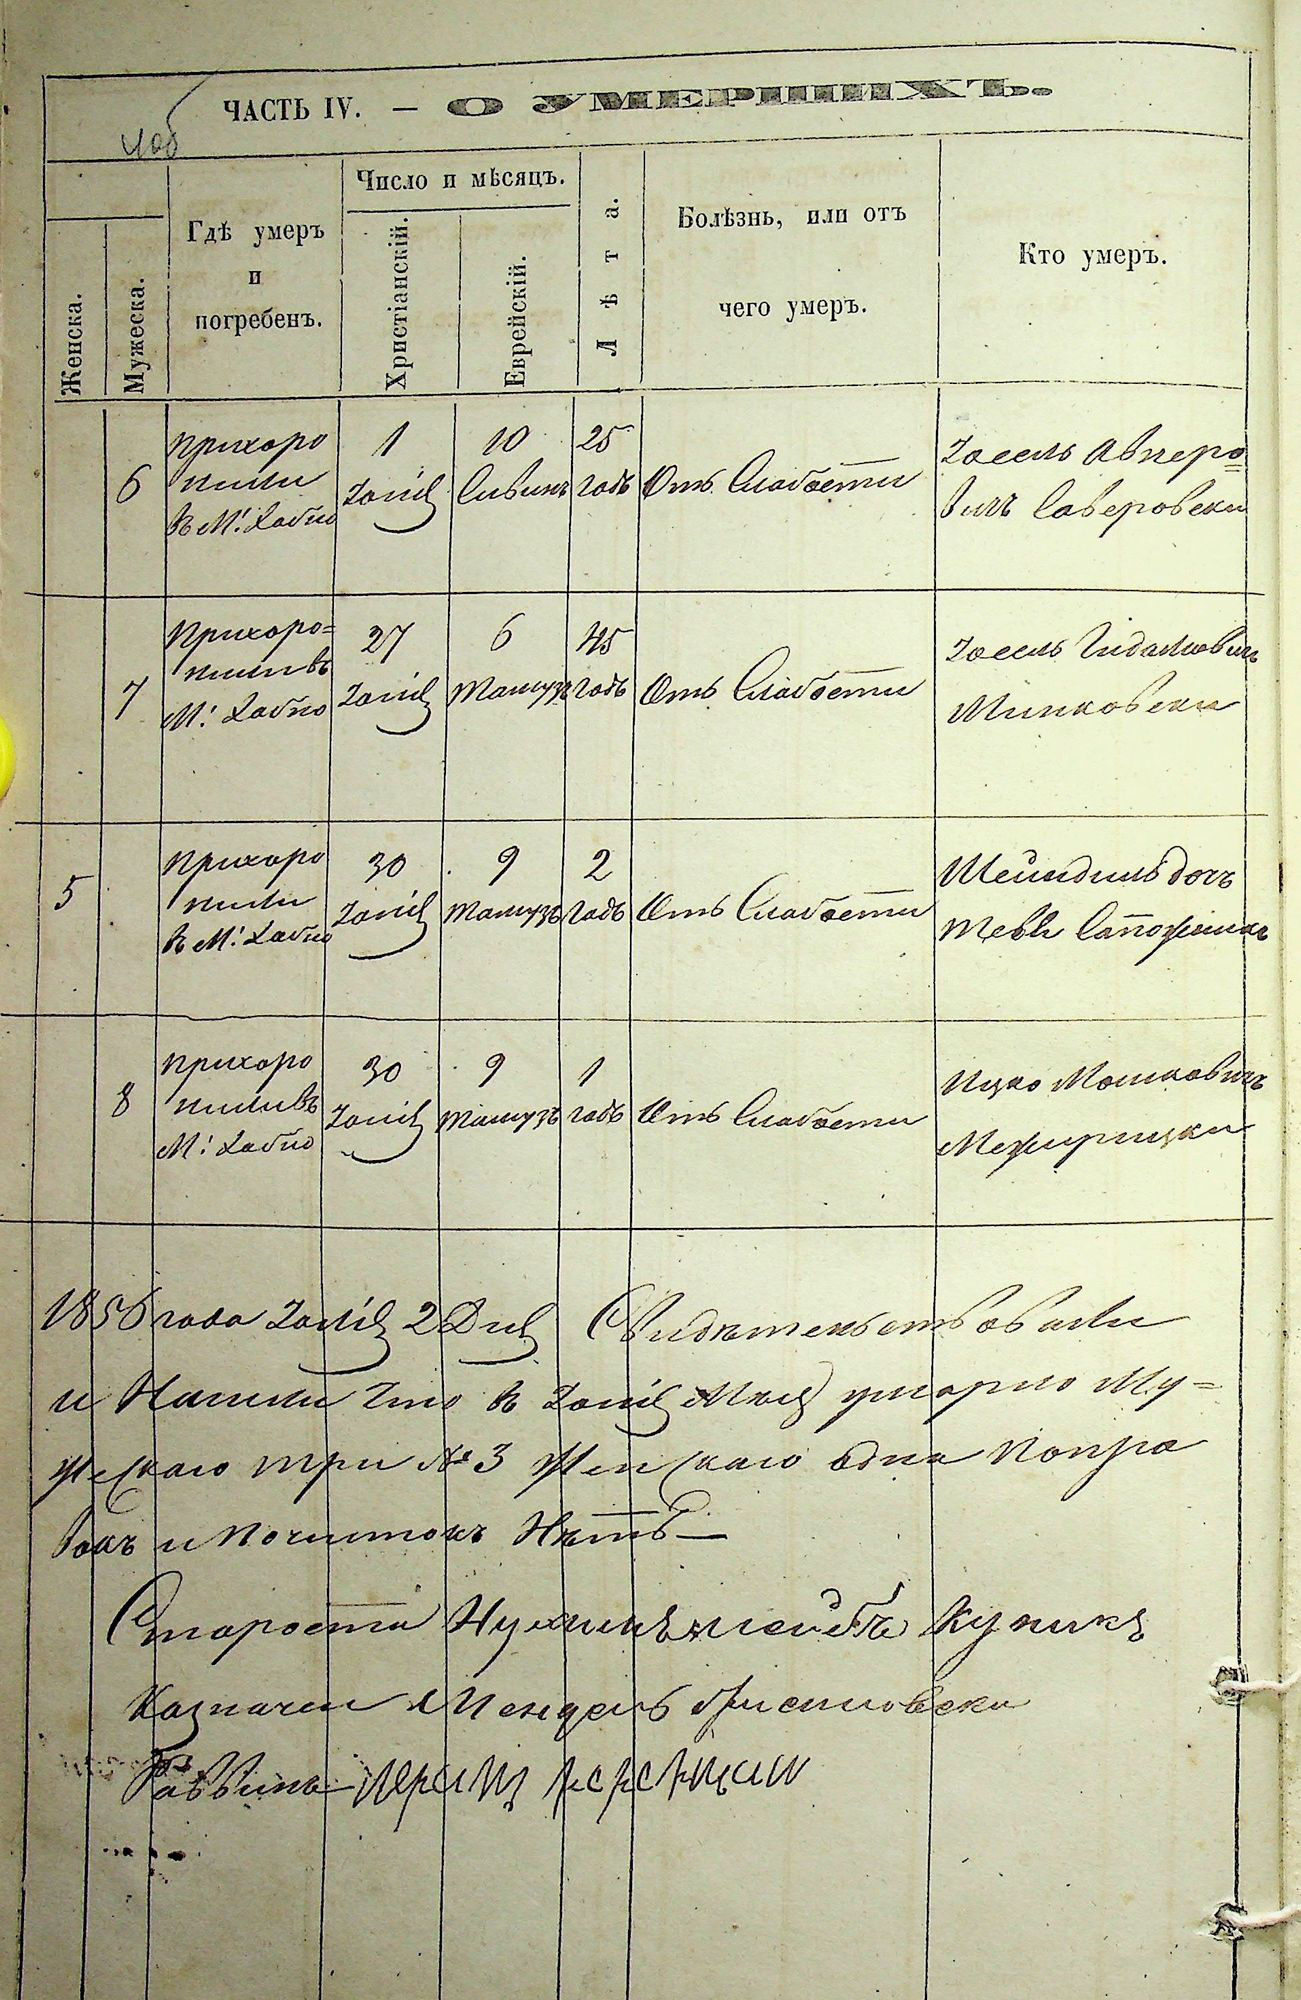 ЧАСТЬ IV. — О УМЕРШИХЪ.
Женска.
Мужеска.
Гдѣ умеръ
и
погребенъ.
Число и мѣсяцъ.
Христіанскій.
Еврейскій.
Лѣта.
Болѣзнь, или отъ
чего умеръ.
Кто умеръ.
6
прихоро
нили
в М: Хабно
1
Іюня
10
Сивинъ
25
годъ
Отъ Слабости
Іосель Авперо=
вичъ Саверовски
7
Прихоро=
нили въ
М: Хабно
27
Іюня
6
Тамузъ
45
годъ
Отъ Слабости
Іосель Гидалiовичъ
Минковски
5
прихоро
нили
в М: Хабно
30
Іюня
9
Тамузъ
2
годъ
Отъ Слабости
Шейндиль дочь
Тевы Сапожникъ
8
прихоро
нили въ
М: Хабно
30
Іюня
9
Тамузъ
1
годъ
Отъ Слабости
Ицко Мошковичъ
Межирицки
1856 года Іюля 2 Дня Свидѣтельствовали
и Нашли что в Іюня Мцѣ умерло Му=
жескаго три № 3 Женскаго одна Попра
вокъ и Почистокъ Нѣтъ —
Староста Нухимъ Лейбъ Куникъ
Казначей Мендель
Раввинъ